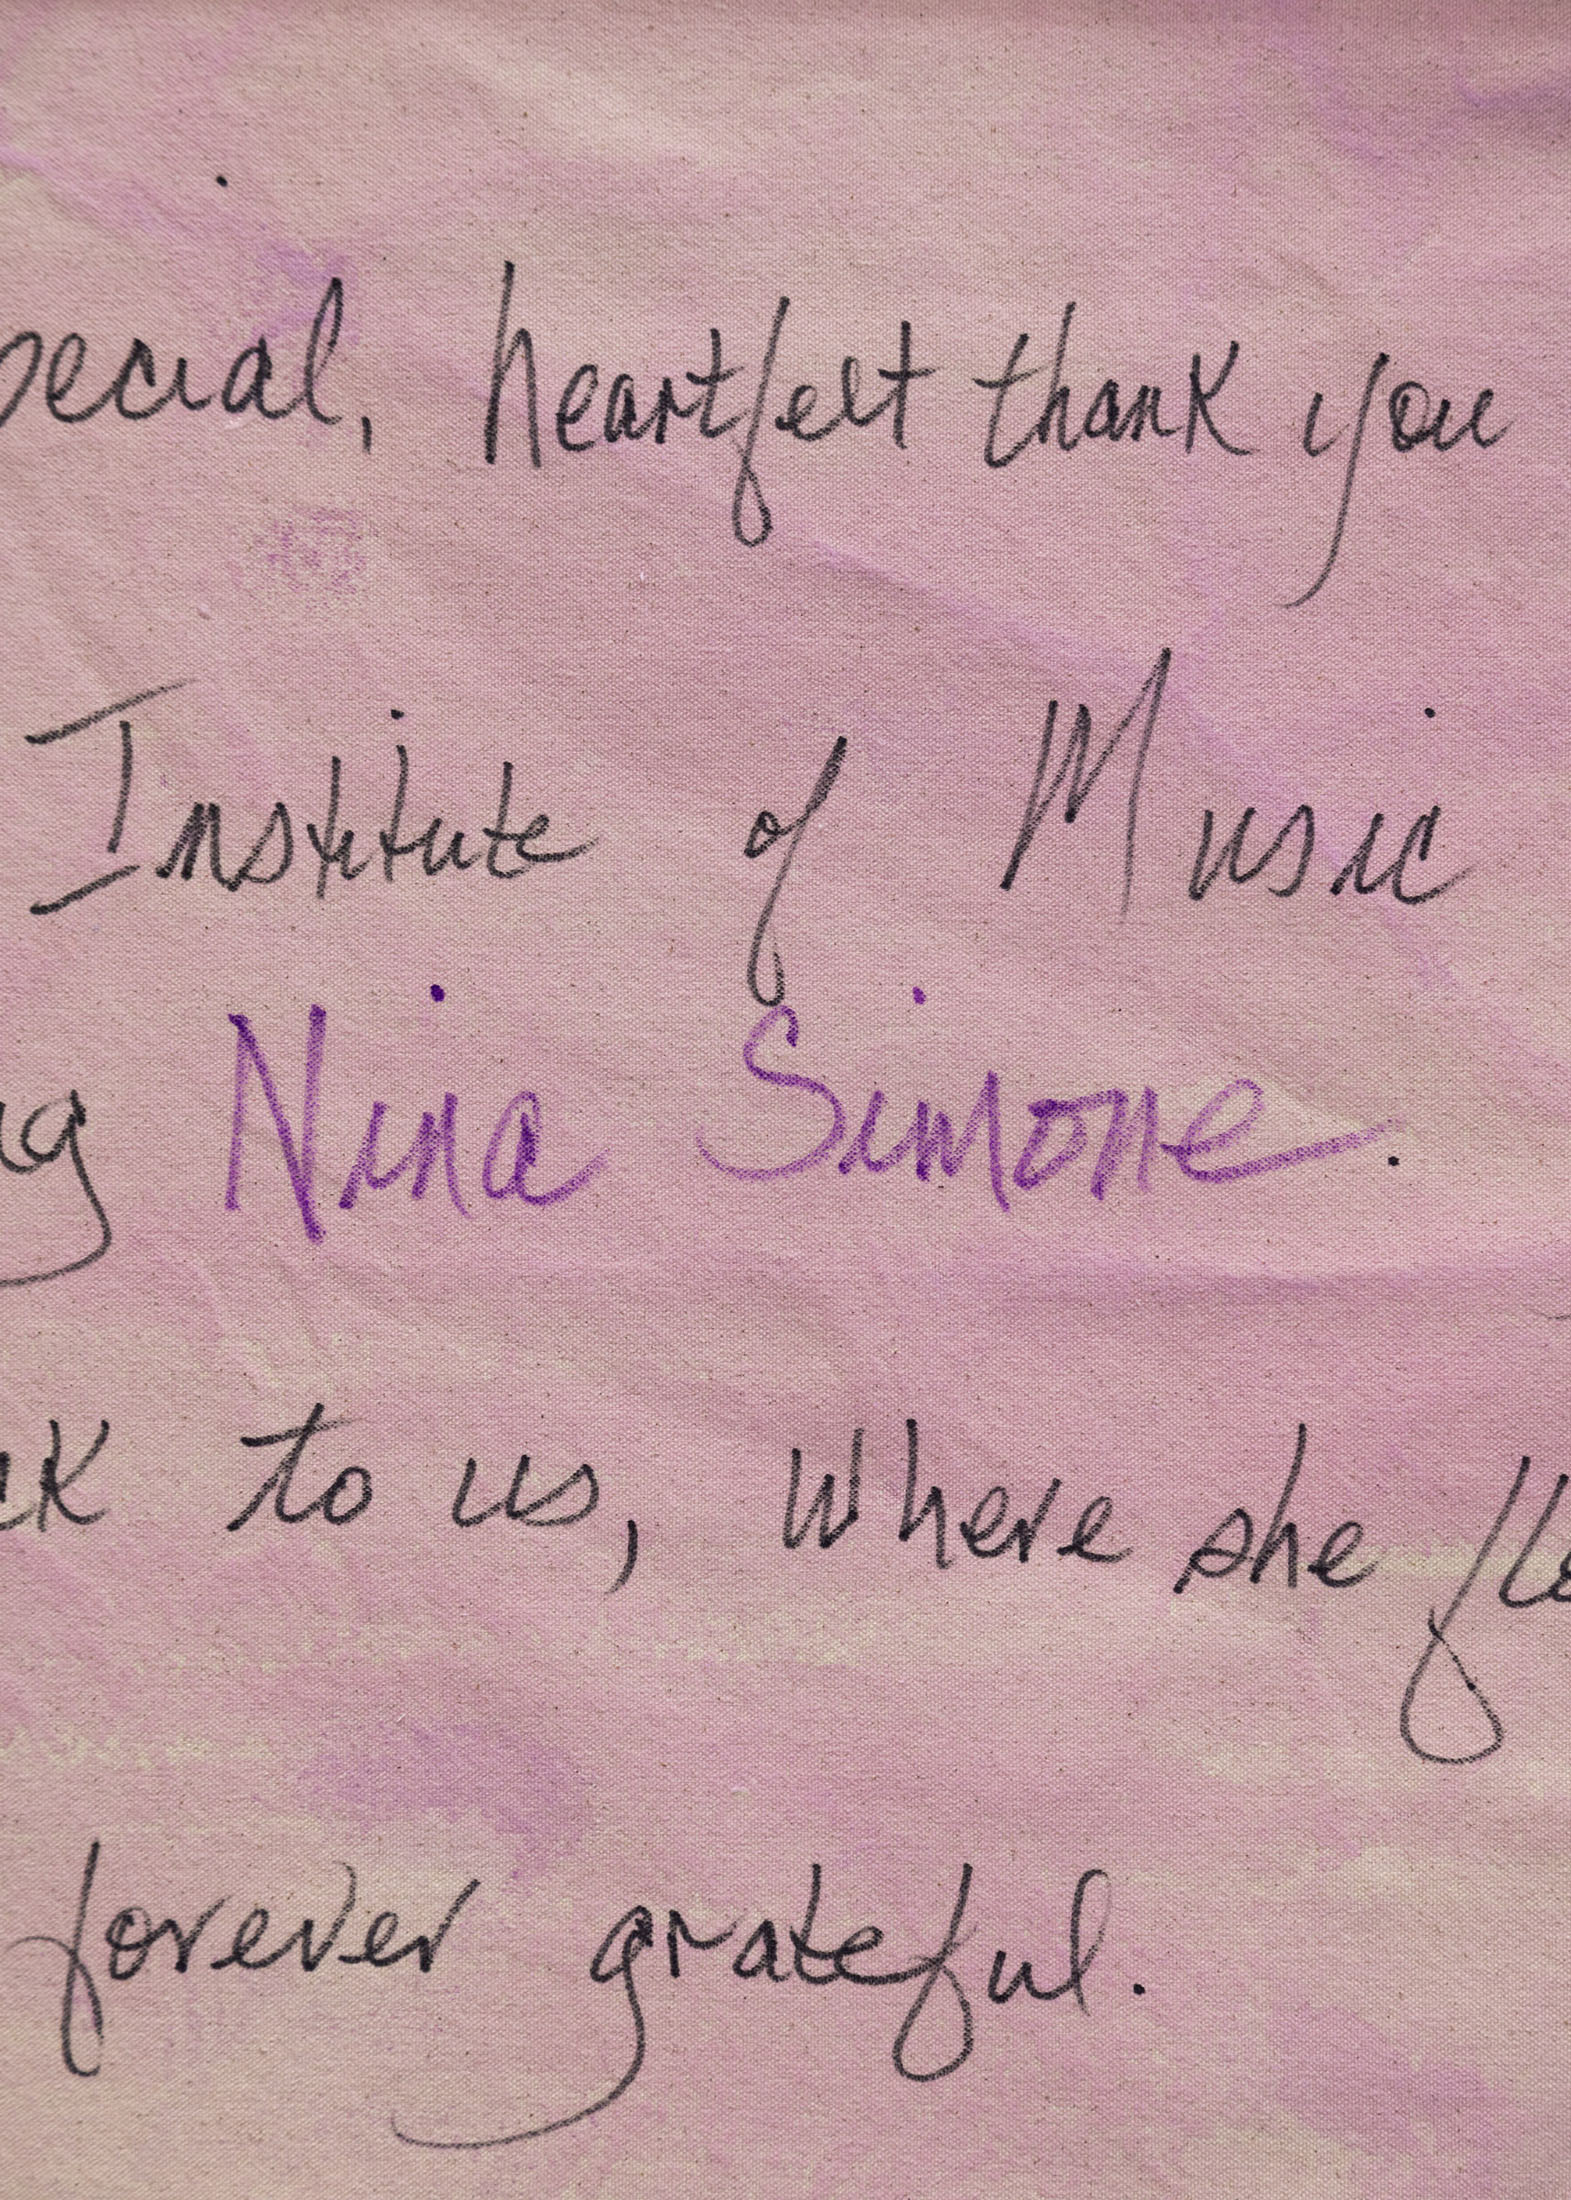 pecial, heartfelt thank you
Institute of Music
ng Nina Simone.
ck to us, where she fl
forever grateful.